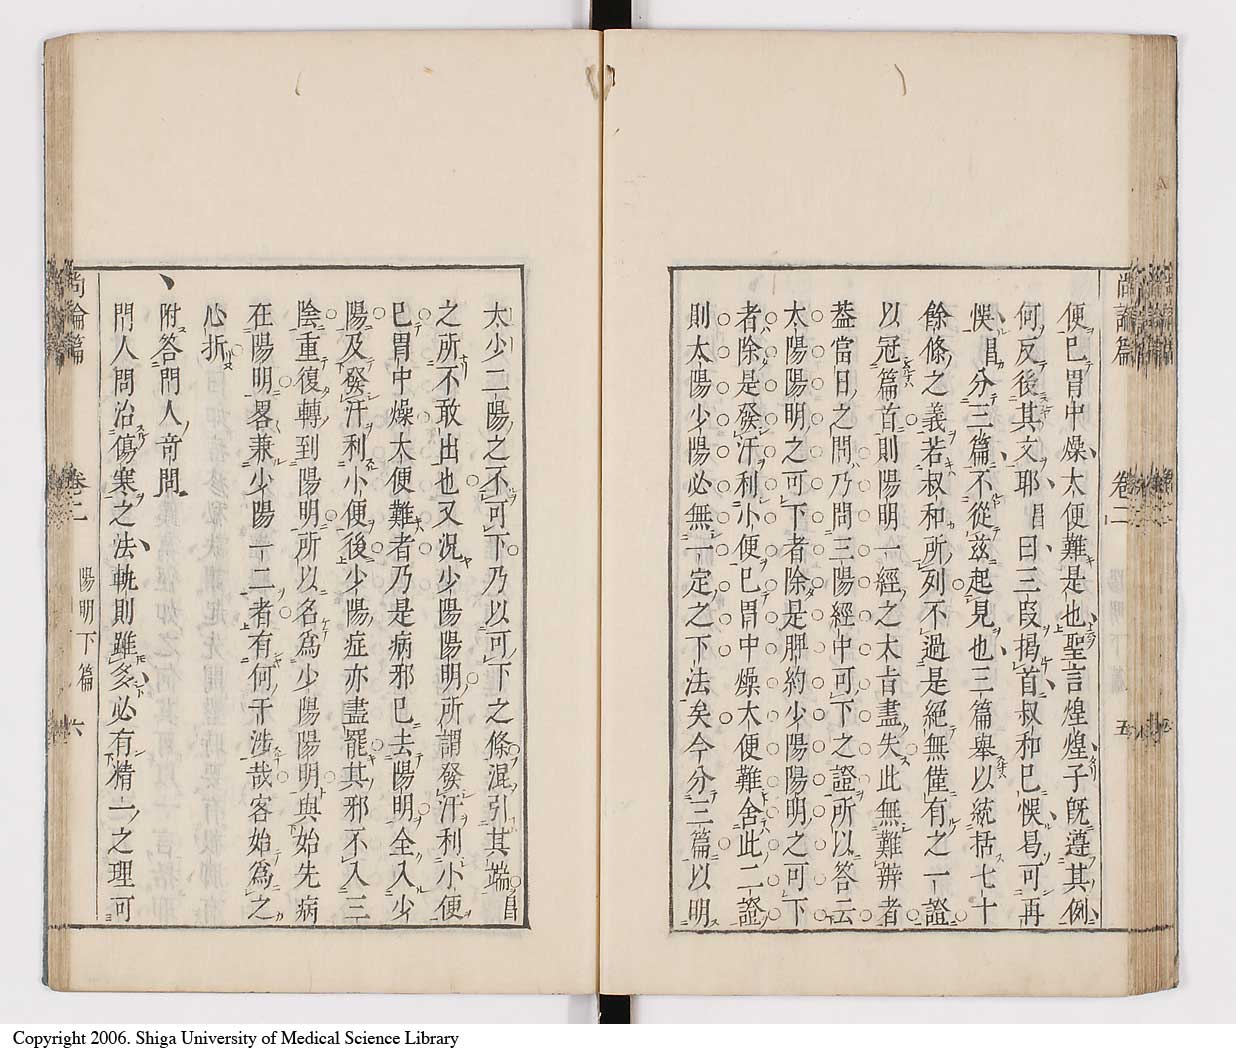 尚論篇 卷二 陽明下篇 五
便巳胃中燥大便難是也聖言煌煌子旣遵其例
何反後其文耶昌曰三叚揭首叔和巳悞曷可再
悞昌分三篇不從兹起見也三篇舉以統括七十
餘條之義若叔和所列不過是絕無僅有之一證
以冠篇首則陽明一經之大旨盡失此無難辨者
葢當日之問乃問三陽經中可下之證所以答云
太陽陽明之可下者除是脾約少陽陽明之可下
者除是發汗利小便巳胃中燥大便難舍此二證
則太陽少陽必無一定之下法矣今分三篇以明
太少二陽之不可下乃以可下之條混引其端昌
之所不敢出也又況少陽陽明所謂發汗利小便
巳胃中燥大便難者乃是病邪巳去陽明全入少
陽及發汗利小便後少陽症亦盡罷其邪不入三
陰重復轉到陽明所以名爲少陽陽明與始先病
在陽明畧兼少陽一二者有何干涉哉客始爲之
心折
附答門人竒問
門人問治傷寒之法軌則雖多必有精一之理可
尚論篇 卷二 陽明下篇 六
Copyright 2006. Shiga University of Medical Science Library